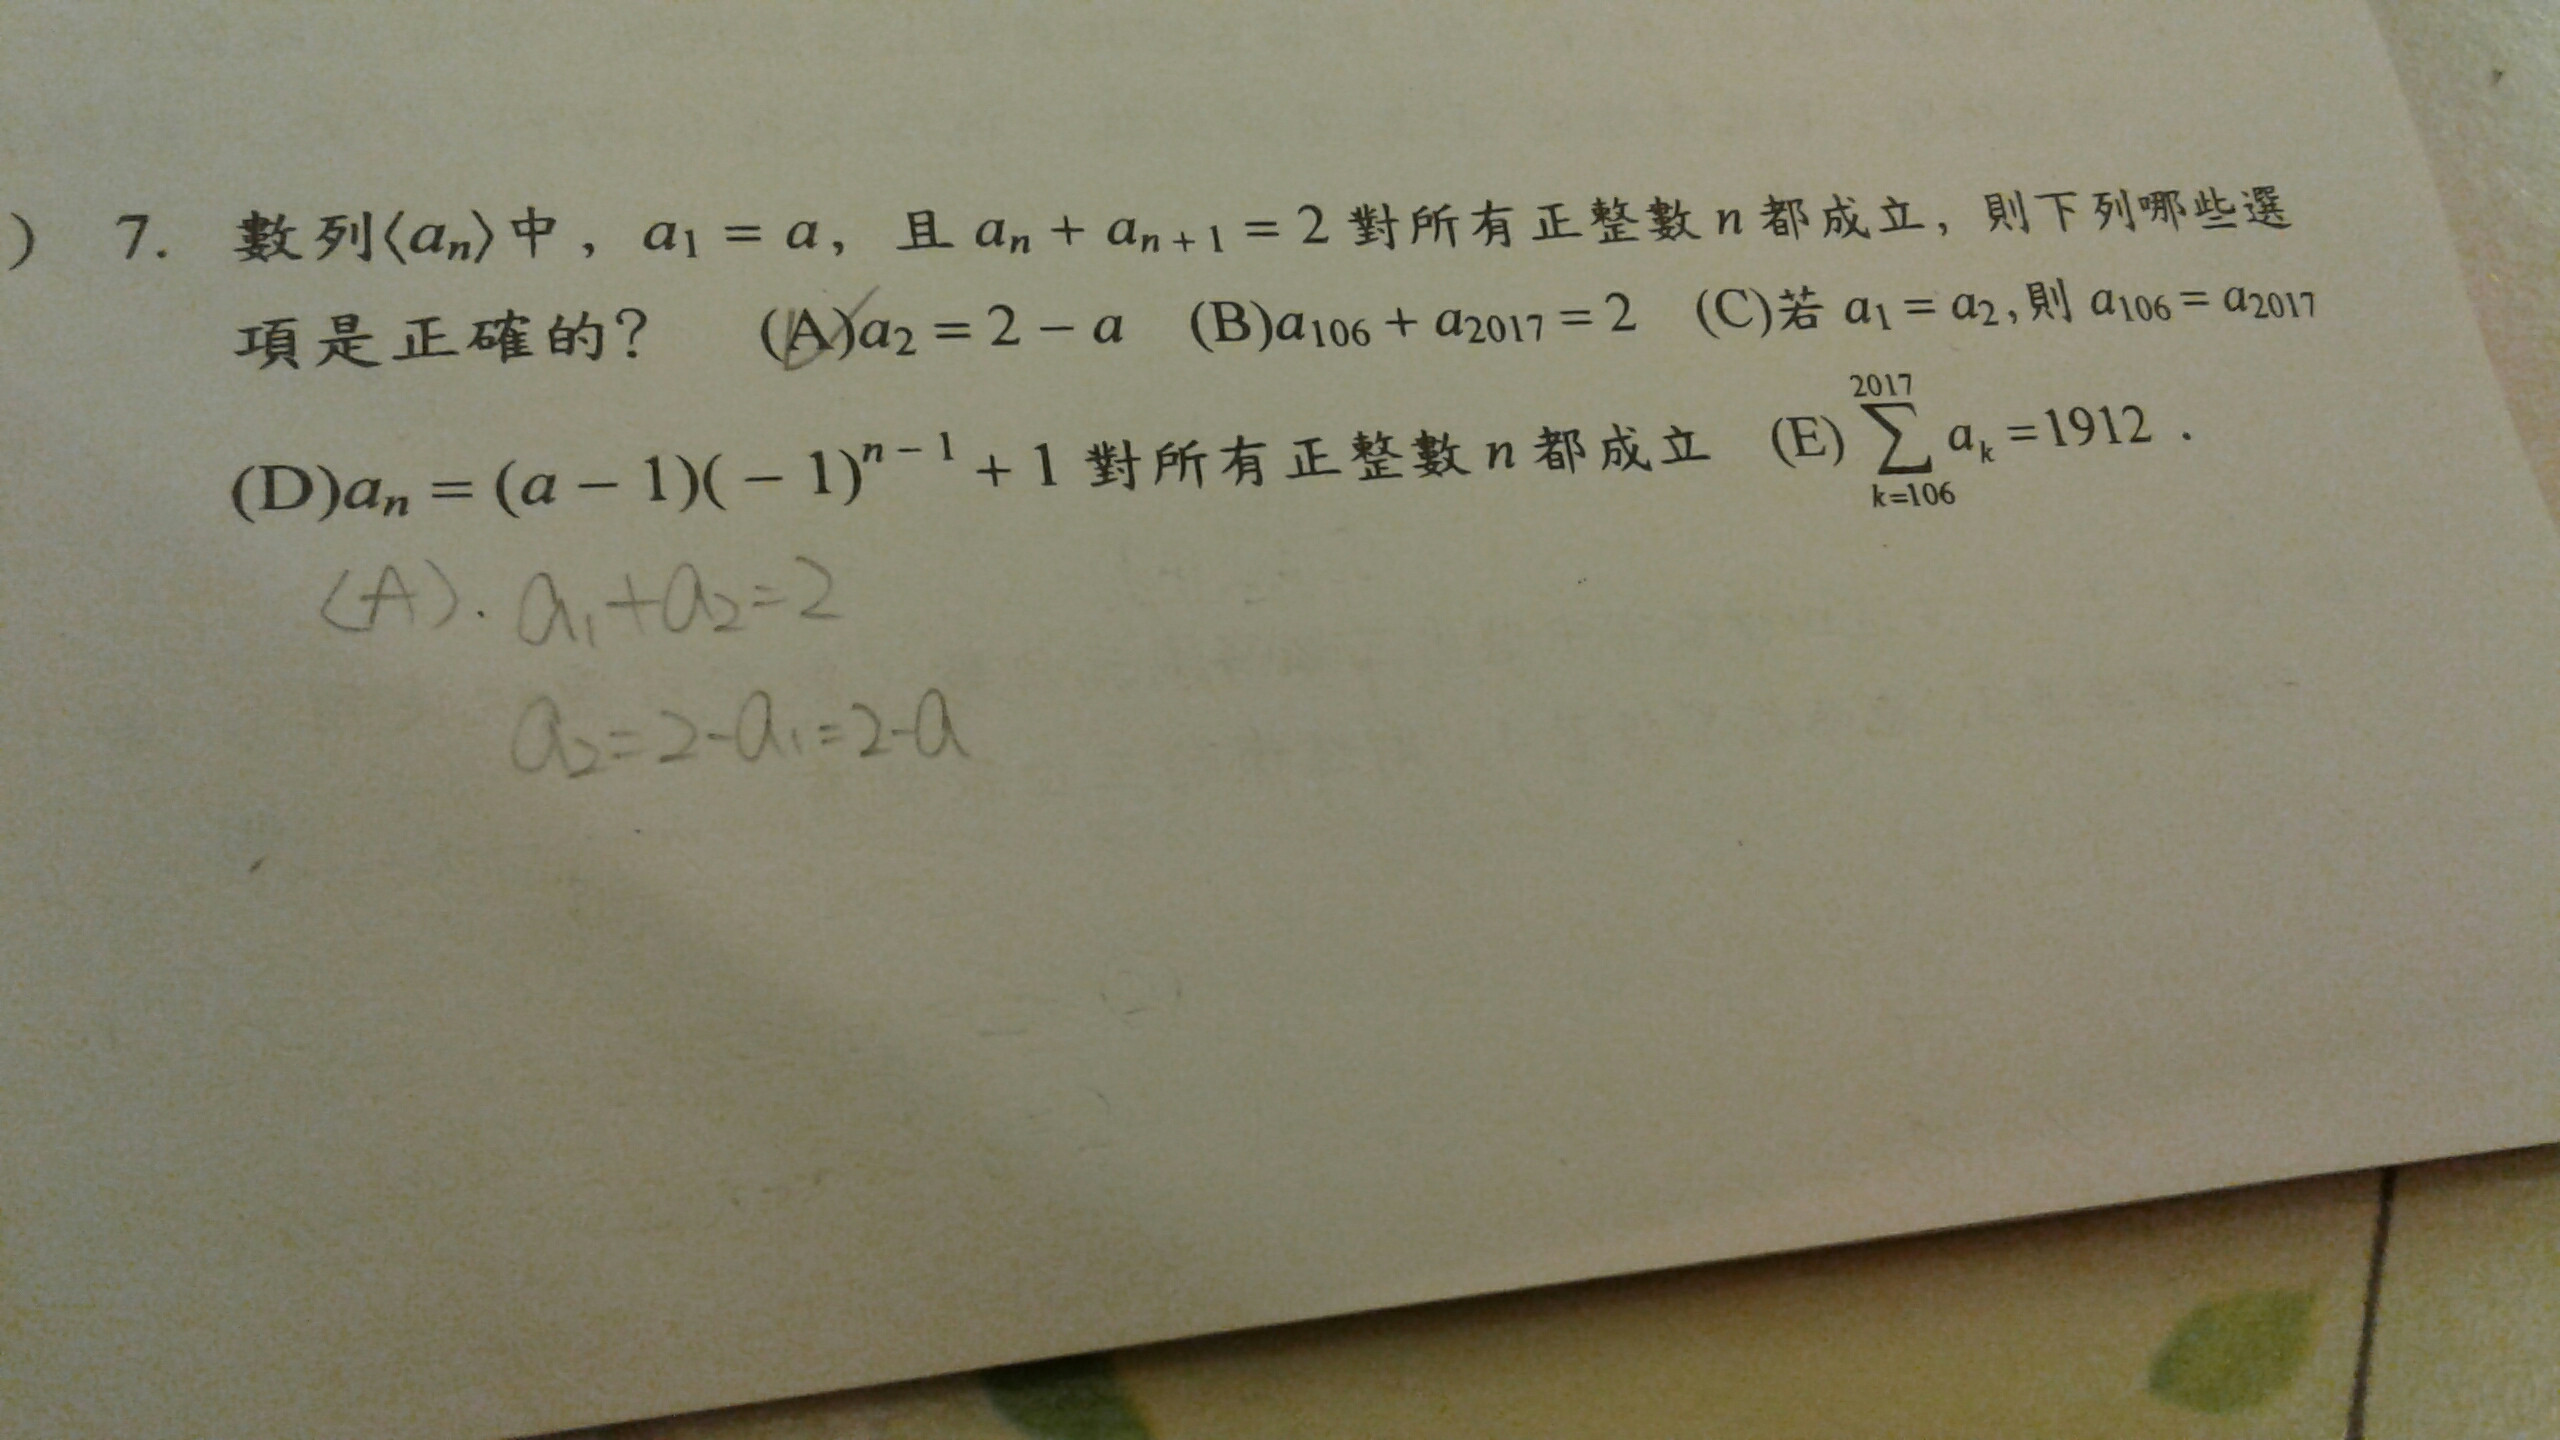 ) 7. 數列⟨aₙ⟩中，a₁ = a，且 aₙ + aₙ₊₁ = 2 對所有正整數 n 都成立，則下列哪些選
項是正確的？ (A)a₂ = 2 − a (B)a₁₀₆ + a₂₀₁₇ = 2 (C)若 a₁ = a₂，則 a₁₀₆ = a₂₀₁₇
(D)aₙ = (a − 1)(− 1)ⁿ⁻¹ + 1 對所有正整數 n 都成立 (E) ∑_{k=106}^{2017} aₖ = 1912．
(A). a₁+a₂=2
a₂=2-a₁=2-a